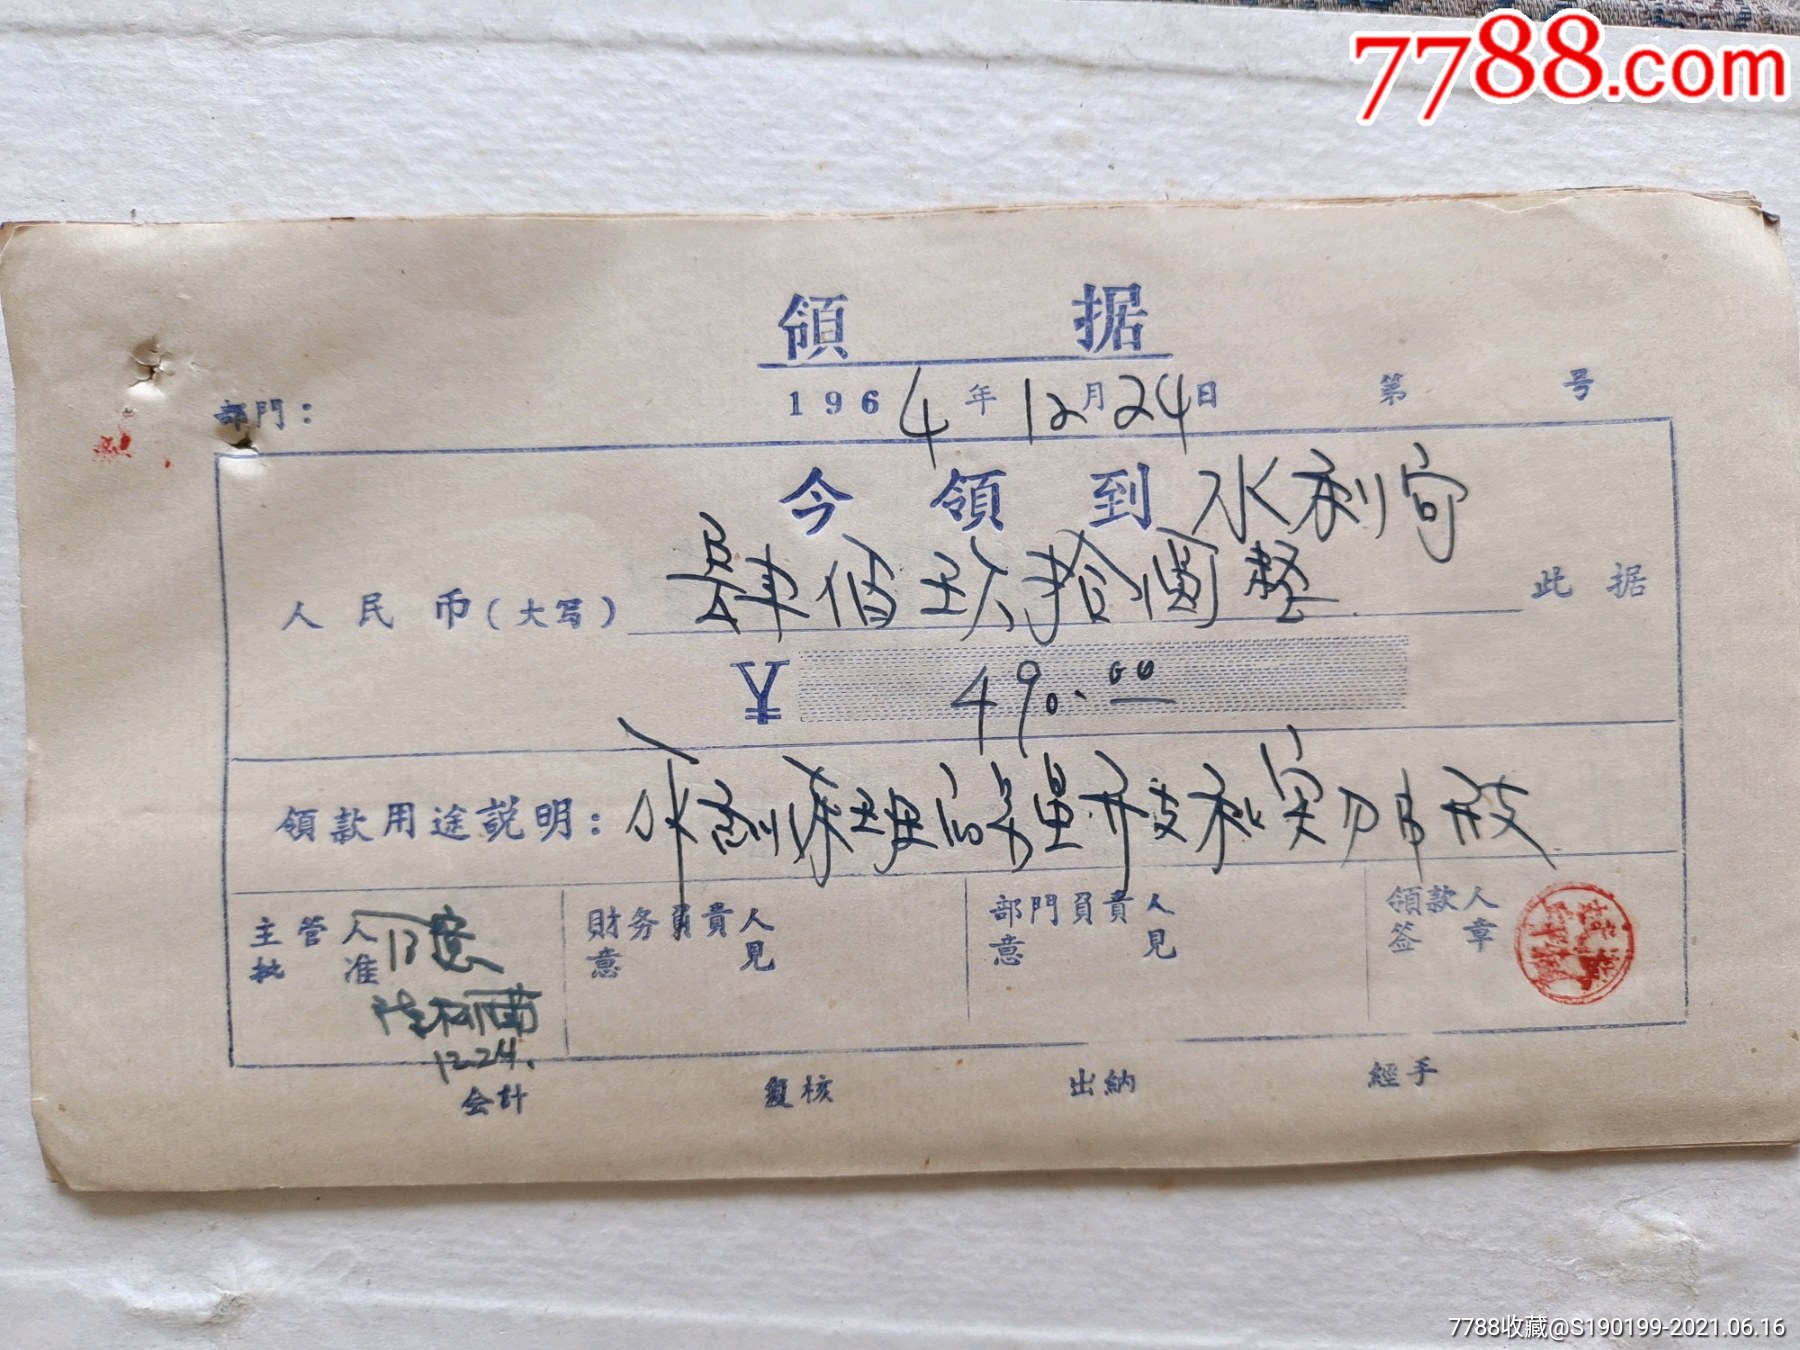 7788.com
領 据
1964年12月24日 第 号
部門：
今領到水利局
人民币(大写) 肆佰玖拾圆整 此据
¥ 490.00
領款用途説明：水利
主管人批准 同意
12.24.
財务負責人意見
部門負責人意見
領款人签章
会計 复核 出納 經手
7788收藏@S190199-2021.06.16